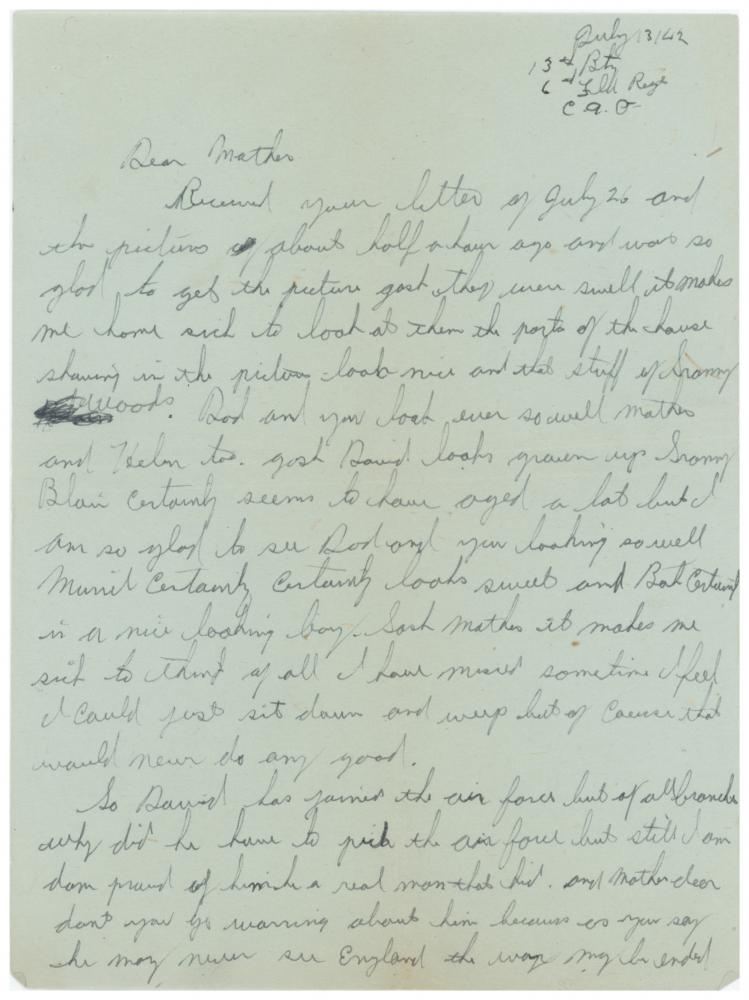 July 13/42
13th Bty
6th Fld Regt
C.A.O
Dear Mother
Received your letter of July 26 and
the pictures of about half a hour ago and was so
glad to get the picture gosh they were swell it makes
me home sick to look at them the parts of the house
showing in the picture look nice and that stuff of Granny
Woods. Dad and you look ever so well Mother
and Helen too. gosh David looks grown up Granny
Blair certainly seems to have aged a lot but I
am so glad to see Dad and you looking so well
Muriel Certainly Certainly looks sweet and Bob Certainly
is a nice looking boy. Gosh Mother it makes me
sick to think of all I have missed sometime I feel
I could just sit down and weep but of course that
would never do any good.
So David has joined the air force but of all branches
why did he have to pick the air force but still I am
dam proud of him he a real man that kid. and Mother dear
dont you go warring about him because as you say
he may never see England the way may be ended